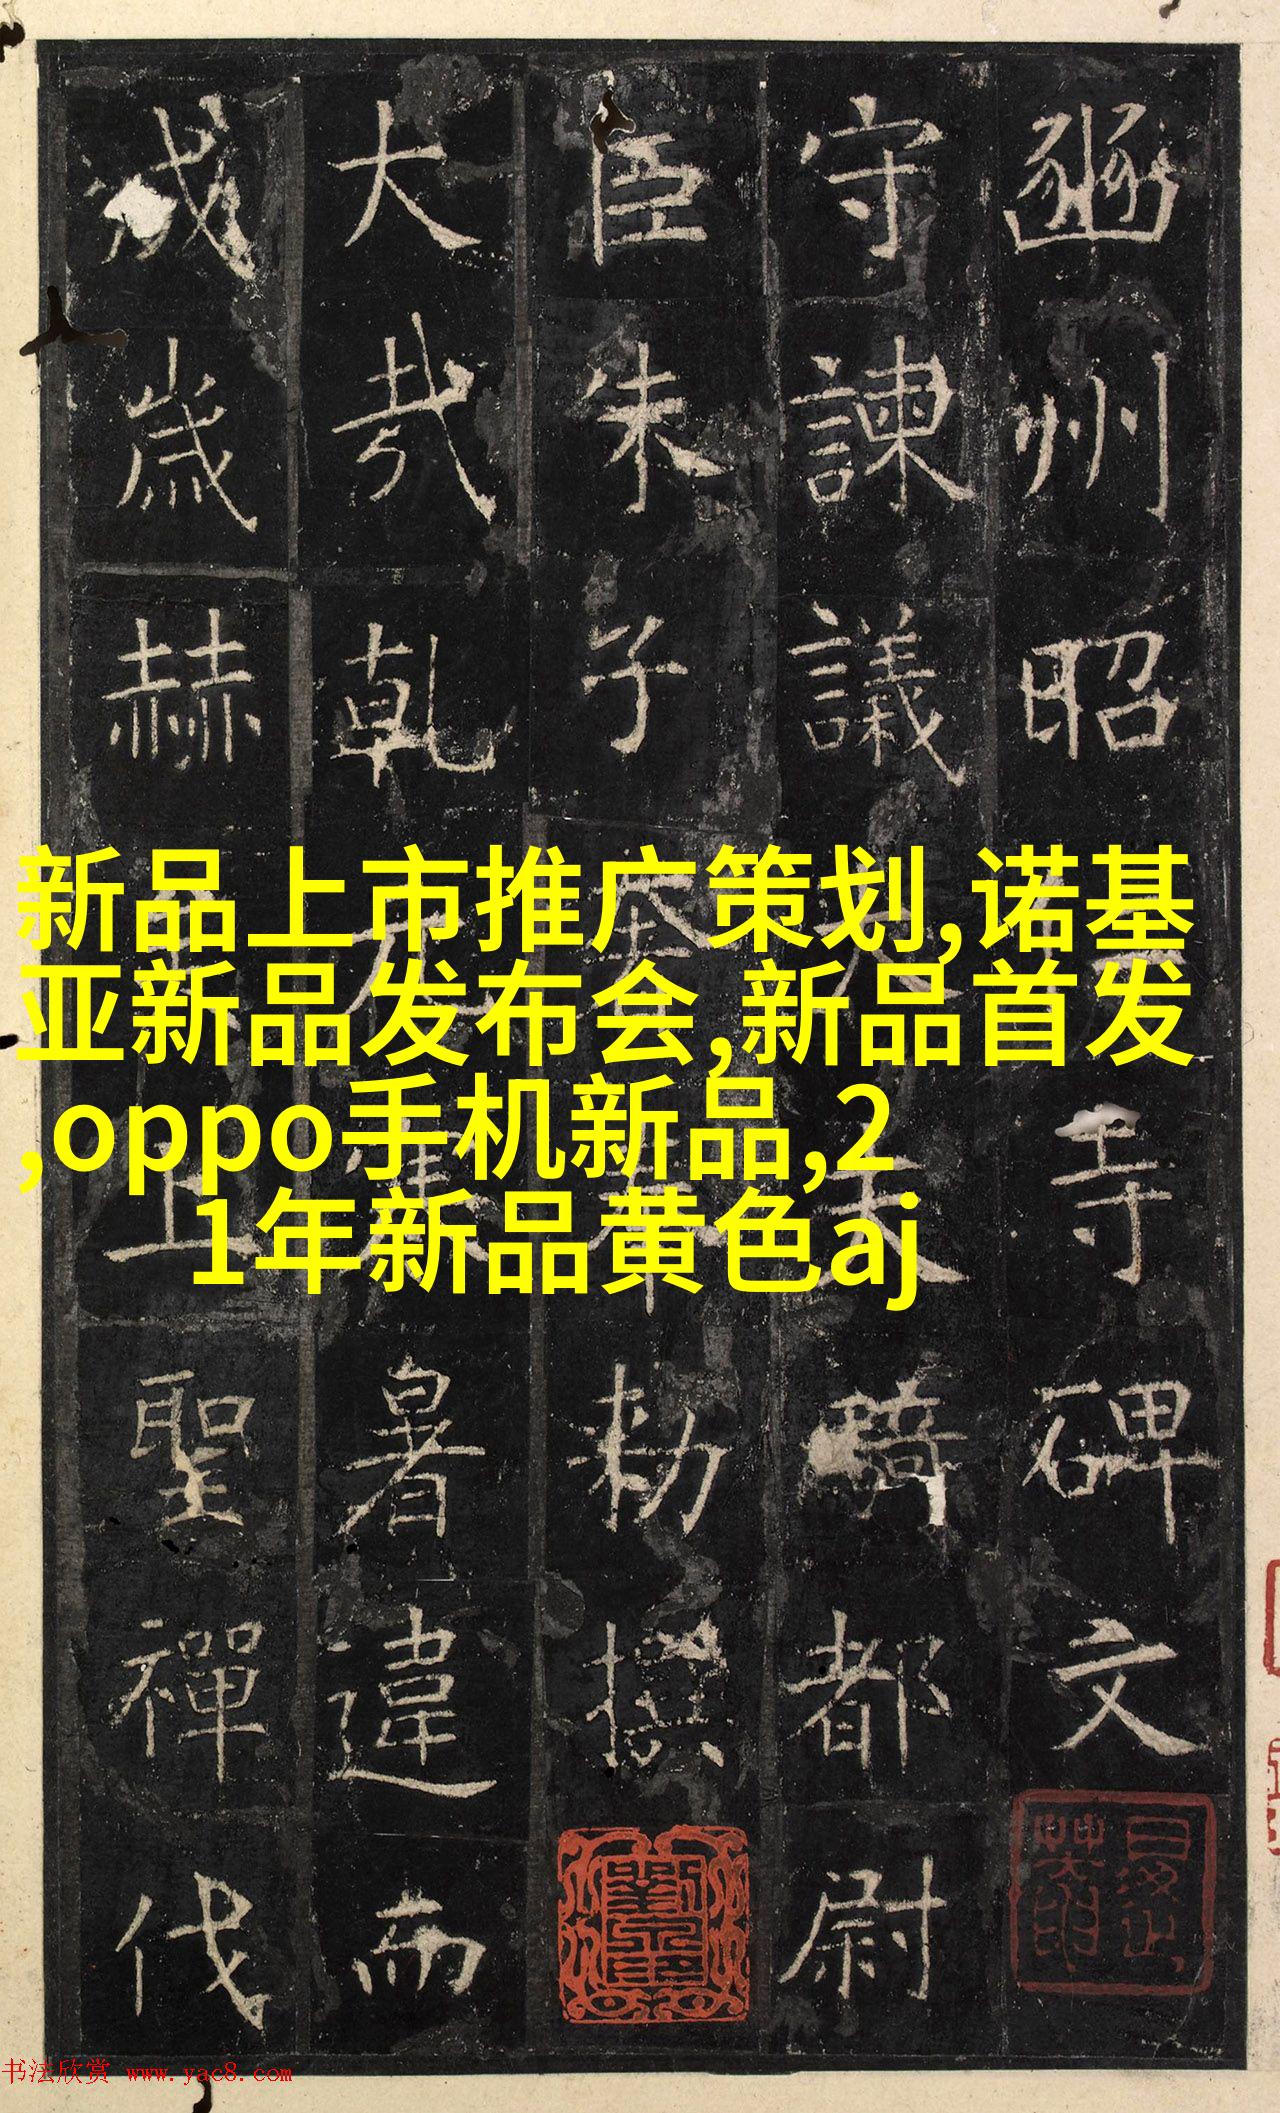 豳州昭寺碑文
守諫議大夫騎都尉
臣朱子奢奉勑撰
大哉乾元暑違而
成歲赫上聖禪代
新品上市推广策划,诺基
亚新品发布会,新品首发
,oppo手机新品,2
1年新品黄色aj
书法欣赏 www.yac8.com